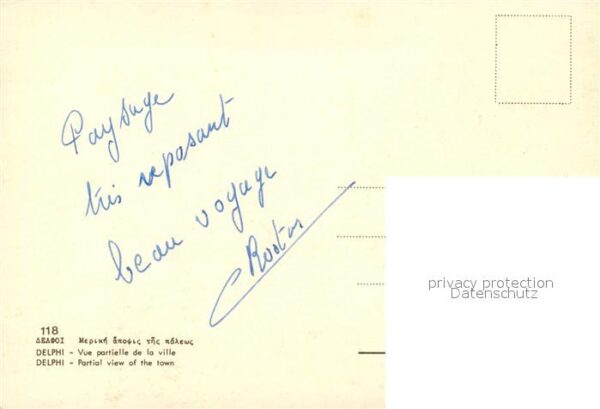 Paysage
très reposant
beau voyage
118
ΔΕΛΦΟΙ Μερική ἄποψις τῆς πόλεως
DELPHI – Vue partielle de la ville
DELPHI – Partial view of the town
privacy protection
Datenschutz